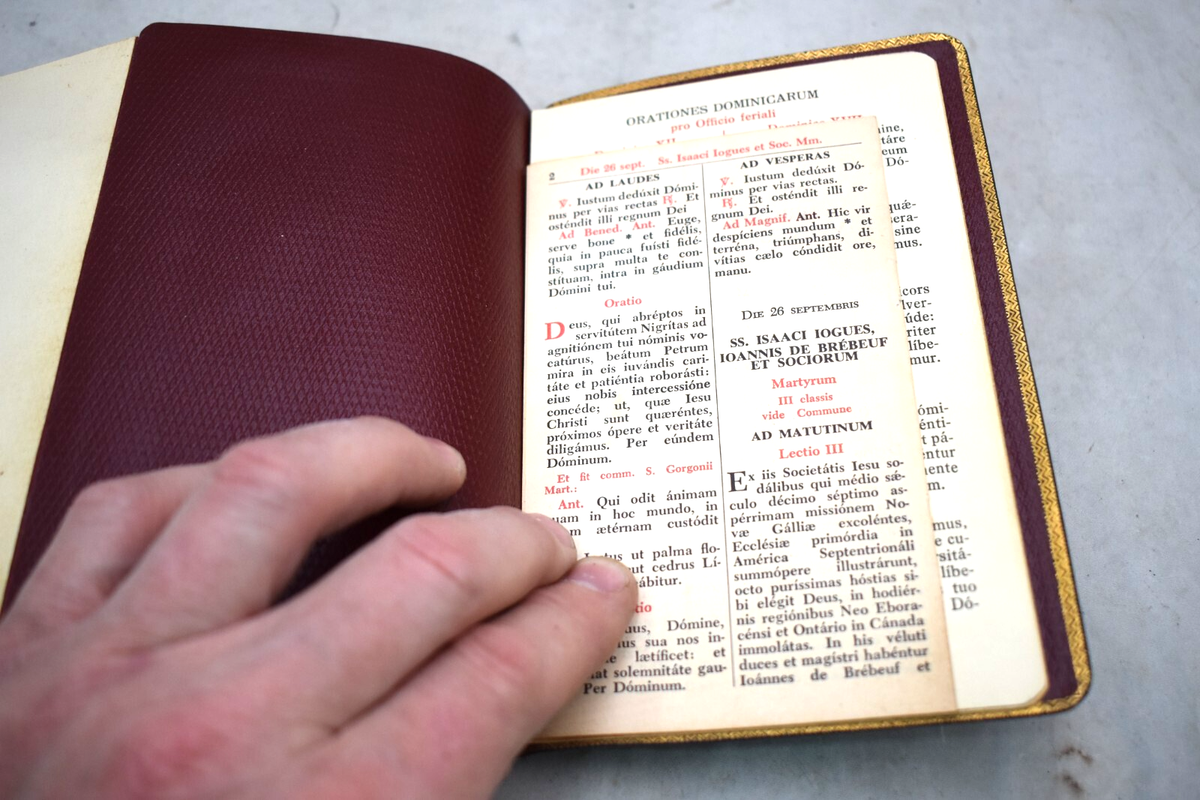 ORATIONES DOMINICARUM
pro Officio feriali
2 Die 26 sept. Ss. Isaaci Iogues et Soc. Mm.
AD LAUDES
℣. Iustum dedúxit Dómi-
nus per vias rectas ℟. Et
osténdit illi regnum Dei
Ad Bened. Ant. Euge,
serve bone * et fidélis,
quia in pauca fuísti fidé-
lis, supra multa te con-
stítuam, intra in gáudium
Dómini tui.
Oratio
Deus, qui abréptos in
servitútem Nigrítas ad
agnitiónem tui nóminis vo-
catúrus, beátum Petrum
mira in eis iuvándis cari-
táte et patiéntia roborásti:
eius nobis intercessióne
concéde; ut, quæ Iesu
Christi sunt quæréntes,
próximos ópere et veritáte
diligámus. Per eúndem
Dóminum.
Et fit comm. S. Gorgonii
Mart.:
Ant. Qui odit ánimam
uam in hoc mundo, in
m ætérnam custódit
tus ut palma flo-
ut cedrus Lí-
ábitur.
tio
uus, Dómine,
us sua nos in-
lætíficet: et
iat solemnitáte gau-
Per Dóminum.
AD VESPERAS
℣. Iustum dedúxit Dó-
minus per vias rectas.
℟. Et osténdit illi re-
gnum Dei.
Ad Magnif. Ant. Hic vir
despíciens mundum * et
terréna, triúmphans, di-
vítias cælo cóndidit ore,
manu.
Die 26 septembris
SS. ISAACI IOGUES,
IOANNIS DE BRÉBEUF
ET SOCIORUM
Martyrum
III classis
vide Commune
AD MATUTINUM
Lectio III
Ex iis Societátis Iesu so-
dálibus qui médio sǽ-
culo décimo séptimo as-
pérrimam missiónem No-
væ Gálliæ excoléntes,
Ecclésiæ primórdia in
América Septentrionáli
summópere illustrárunt,
octo puríssimas hóstias si-
bi elégit Deus, in hodiér-
nis regiónibus Neo Ebora-
cénsi et Ontário in Cánada
immolátas. In his véluti
duces et magístri habéntur
Ioánnes de Brébeuf et
ine,
táre
eum
Dó-
quæ-
era-
sine
mus.
cors
lver-
úde:
riter
líbe-
mur.
ómi-
énti-
t pá-
éntur
mente
m.
mus,
e cu-
rsitá-
líbe-
tuo
Dó-